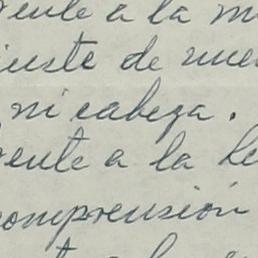 rente a la m
juste de nue
ni cabeza.
rente a la le
comprensión